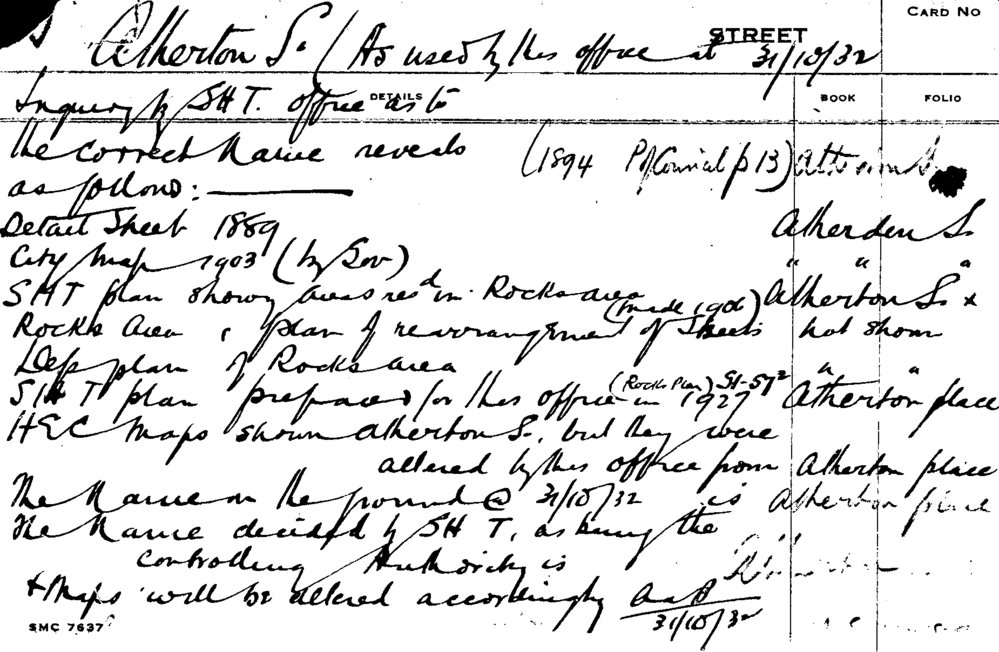 CARD NO
STREET
Atherton St (As used by this office at 31/10/32
DETAILS BOOK FOLIO
Inquiry by SHT. office as to
the correct Name reveals (1894 P of Council p 13)
as follows:
Detail Sheet 1889 Atherden St.
City Map 1903 (by Gov) " " "
SHT plan showing areas resd in Rocks area Atherton St x
Rocks Area, plan of rearrangement of Streets (made 1906) not shown
Dep plan of Rocks area " "
SHT plan prepared for this office in 1927 (Rocks Plan) Atherton place
HEC Maps shown Atherton St., but they were
altered by this office from Atherton place
The Name on the ground @ 31/10/32 is Atherton place
The Name decided by SHT, as being the
controlling Authority is
+ Maps will be altered accordingly
31/10/32
SMC 7637